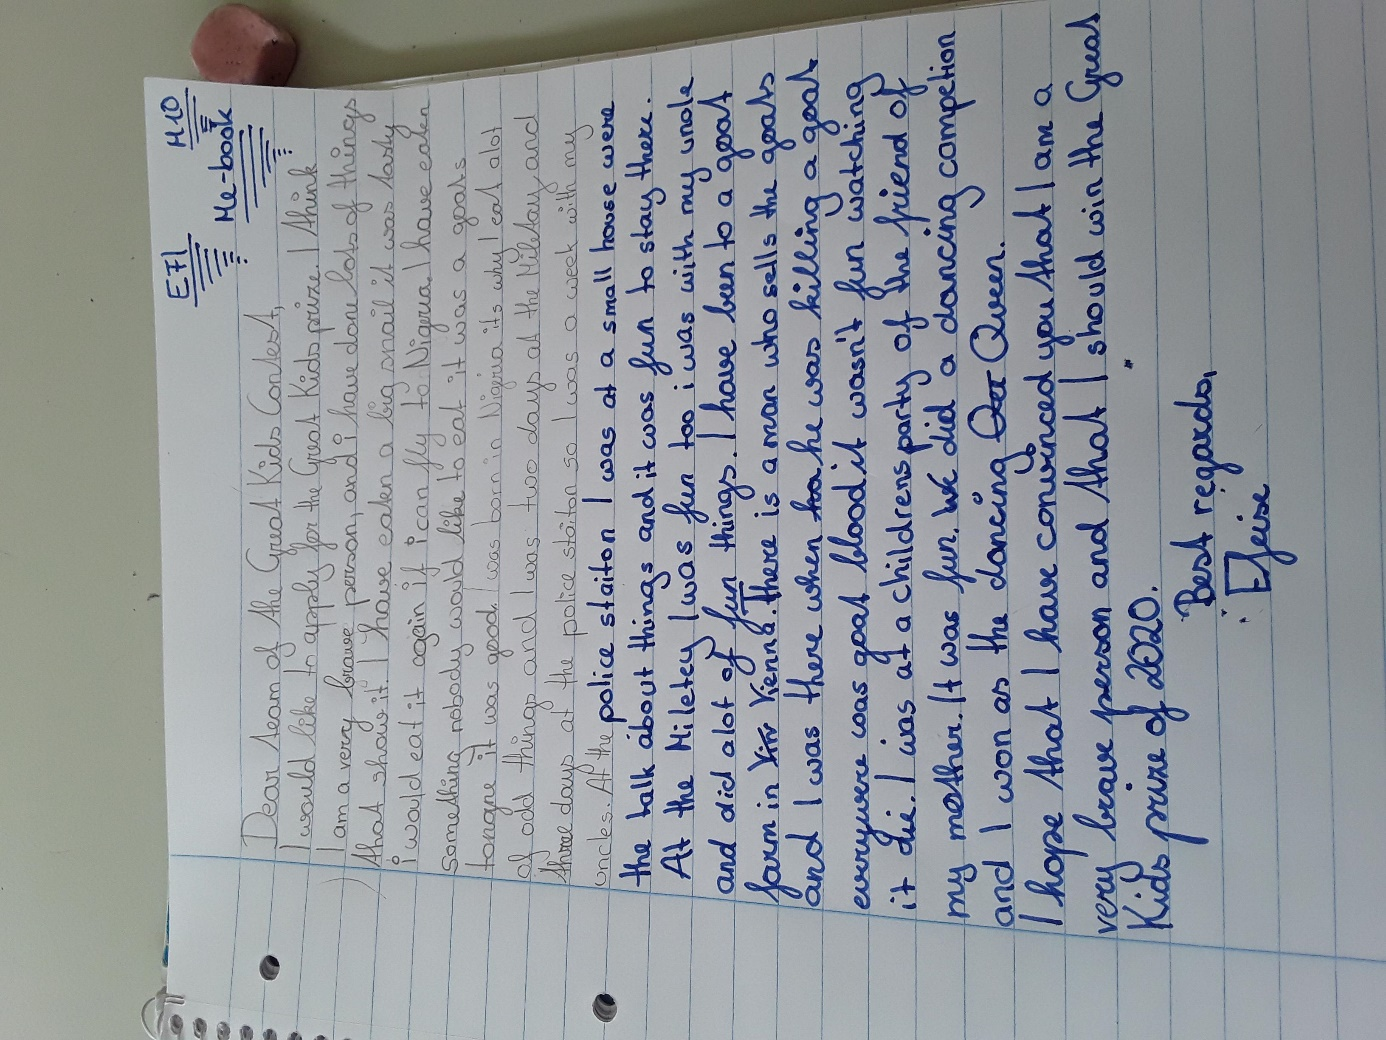 E71 H10
Me-book
Dear team of the Great Kids Contest,
I would like to apply for the Great Kids prize. I think
I am a very brave person, and i have done lots of things
that show it. I have eaten a big snail it was tasty
i would eat it again if i can fly to Nigria. I have eaten
something nobody would like to eat it was a goats
tongue it was good. I was born in Nigeria its why I eat alot
of odd things and I was two days at the Miletay and
three days at the police staiton so I was a week with my
uncles. At the police staiton I was at a small house were
the talk about things and it was fun to stay there.
At the Miletey I was fun too i was with my uncle
and did alot of fun things. I have been to a goat
farm in Vienna. There is a man who sells the goats
and I was there when he was killing a goat
everywere was goat blood it wasn't fun watching
it die. I was at a childrens party of the friend of
my mother. It was fun. We did a dancing competion
and I won as the dancing Queen.
I hope that I have convinced you that I am a
very brave person and that I should win the Great
Kids prize of 2020.
Best regards,